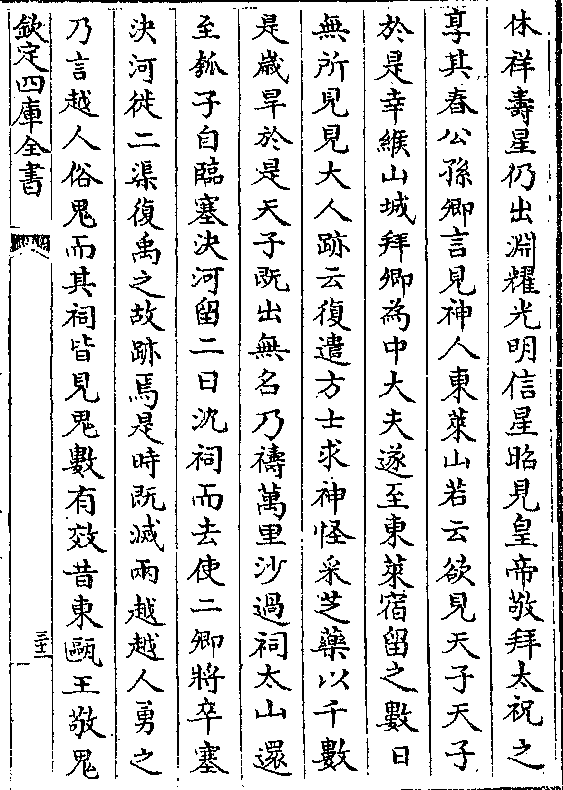 休祥壽星仍出淵耀光明信星昭見皇帝敬拜太祝之
享其春公孫卿言見神人東萊山若云欲見天子天子
於是幸緱山城拜卿為中大夫遂至東萊宿留之數日
無所見見大人跡云復遣方士求神怪采芝藥以千數
是嵗旱於是天子既出無名乃禱萬里沙過祠太山還
至瓠子自臨塞決河留二日沈祠而去使二卿將卒塞
決河徙二渠復禹之故跡焉是時既滅兩越越人勇之
乃言越人俗鬼而其祠皆見鬼數有效昔東甌王敬鬼
欽定四庫全書
三十二